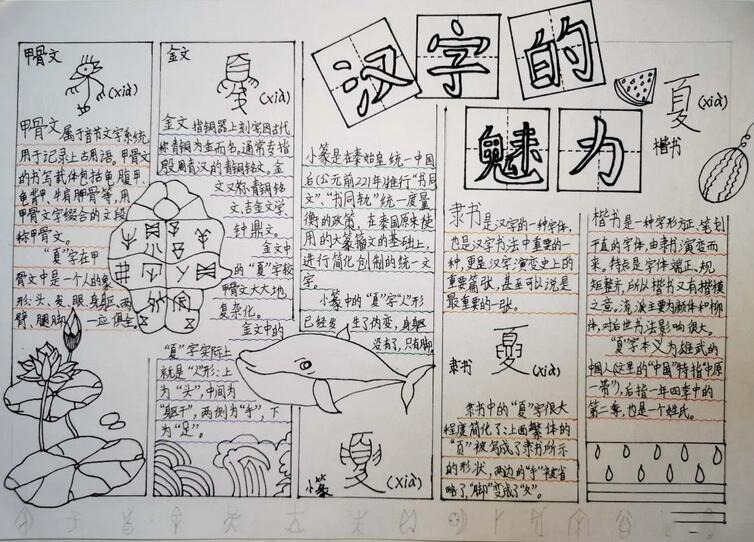 汉字的
魅力
甲骨文
(xià)
甲骨文属于音节文字系统,
用于记录上古用语。甲骨文
的书写载体包括龟腹甲、
龟背甲、牛肩胛骨等,用
甲骨文字缀合的文段
称甲骨文。
"夏"字在甲
骨文中是一个人的象
形:头、发、眼、身躯、两
臂、腿脚,一应俱全。
金文
(xià)
金文指铜器上刻字因古代
称青铜为金而名,通常专指
殷周青汉的青铜铭文,金
文又称青铜铭
文、吉金文学、
钟鼎文。
金文中
的"夏"字较
甲骨文大大地
复杂化。
金文中的
"夏"字实际上
就是"人"形:上
为"头",中间为
"躯干",两侧为"手",下
为"足"。
小篆是在秦始皇统一中国
后(公元前221年)推行"书同
文","书同轨"统一度量
衡的政策,在秦国原来使
用的大篆籀文的基础上,
进行简化创制的统一文
字。
小篆中的"夏"字"人"形
已经发生了伪变,身躯
没有了,只有脚
夏
(xià)
小篆
隶书是汉字的一种字体,
也是汉字书法中重要的一
种,更是汉字演变史上的
重要篇张,甚至可以说是
最重要的一张。
隶书
夏
(xià)
隶书中的"夏"字很大
程度简化了:上面繁体的
"页"被写成了隶书所示
的形状,两边的"手"被省
略了,"脚"变成了"夂"。
夏
(xià)
楷书
楷书是一种字形方正、笔划
平直的字体,由隶书演变而
来,特点是字体端正、规
矩整齐,所以楷书又有楷模
之意,流派主要为颜体和柳
体,对后世书法影响很大。
"夏"字本义为雄武的
中国人(这里的"中国"特指"中原
一带"),后指一年四季中的
第二季,也是一个姓氏。